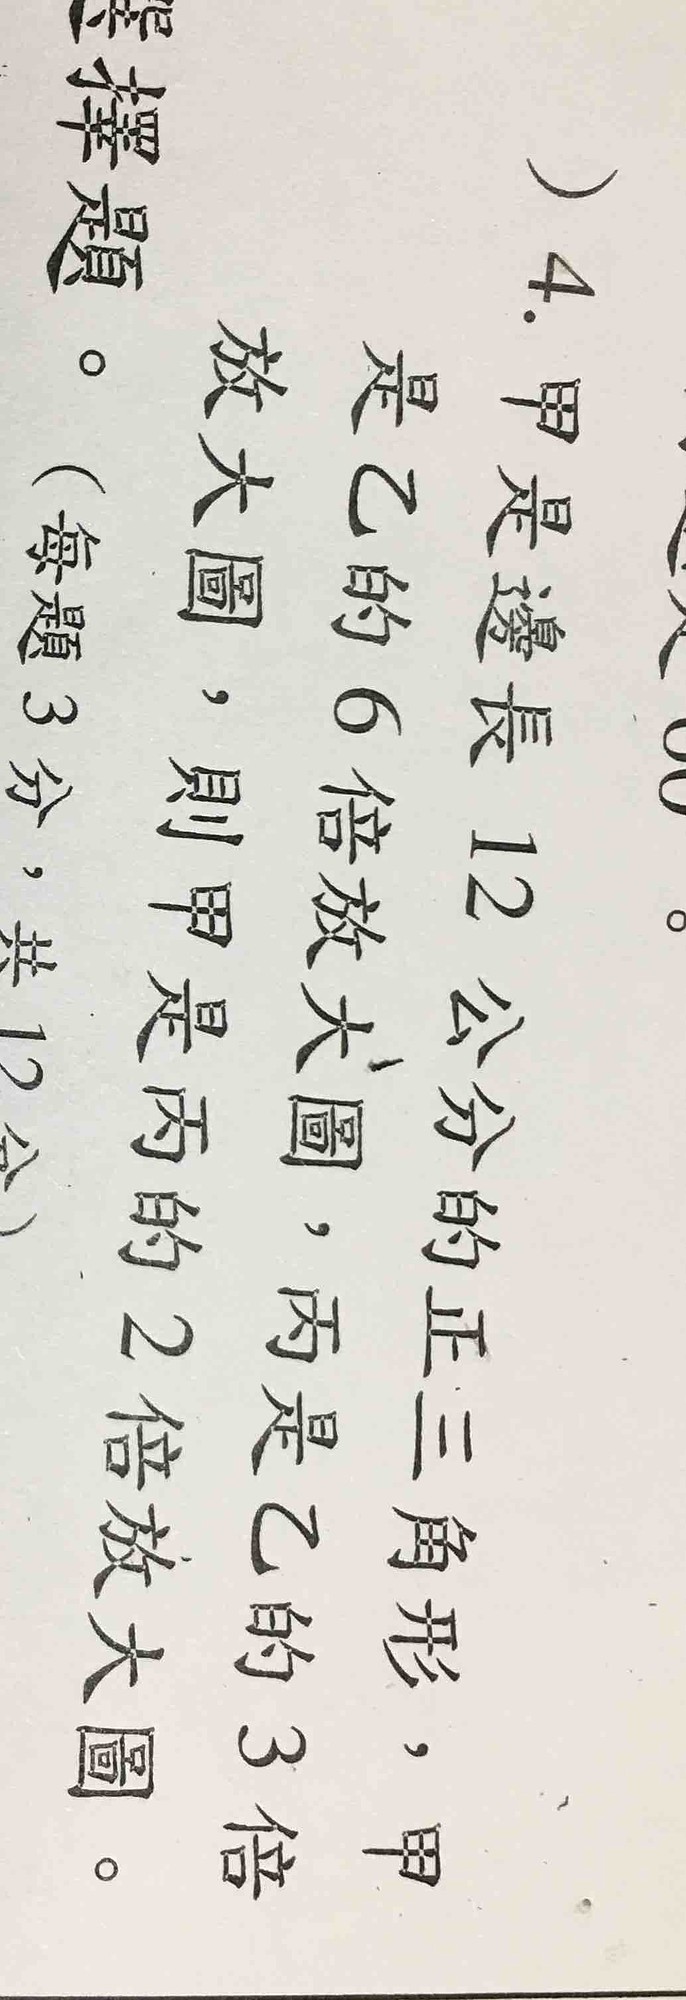 )4.甲是邊長 12 公分的正三角形,甲
是乙的 6 倍放大圖,丙是乙的 3 倍
放大圖,則甲是丙的 2 倍放大圖。
擇題。(每題 3 分,共 12 分)